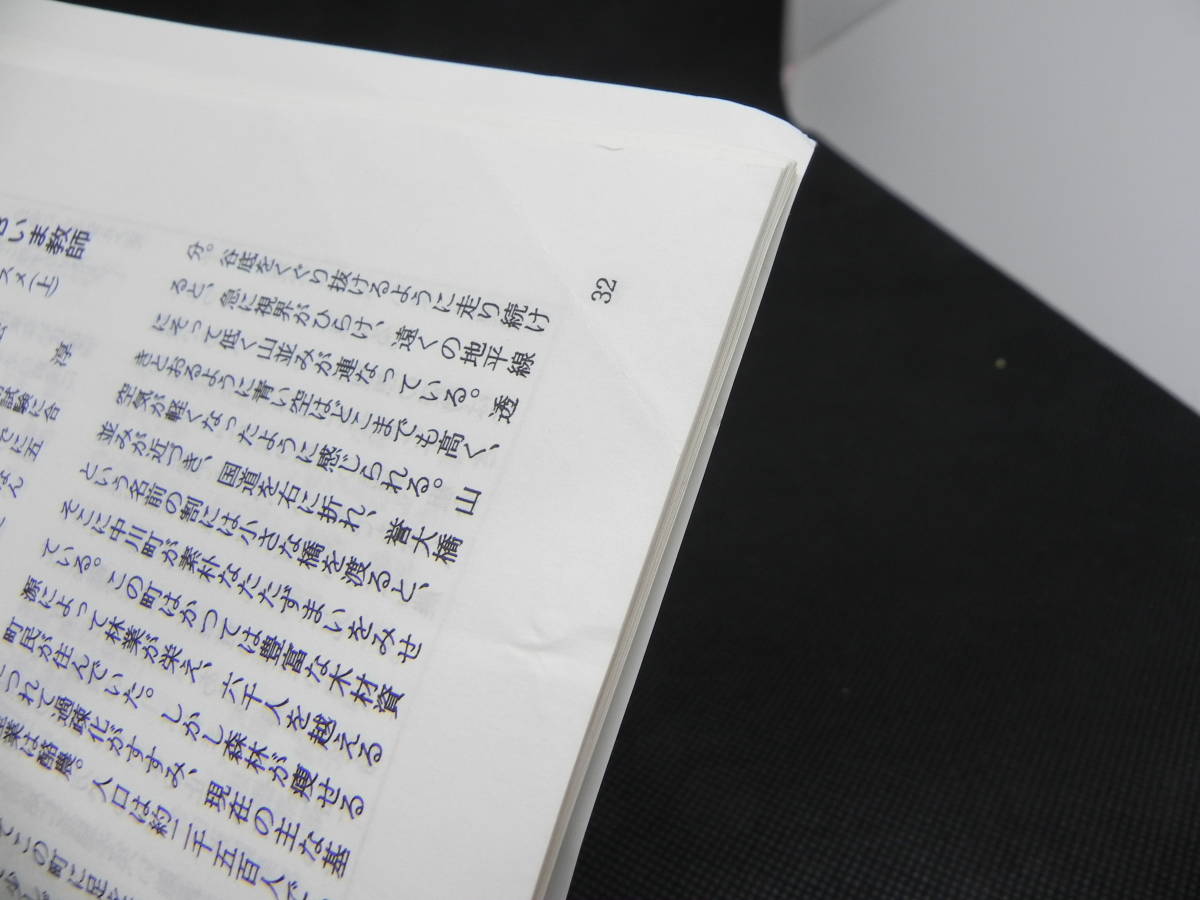 いま教師
スメ(上)
淳
試験に合
でに五
ばん
分。谷底をくぐり抜けるように走り続け
ると、急に視界がひらけ、遠くの地平線
にそって低く山並みが連なっている。透
きとおるように青い空はどこまでも高く、
空気が軽くなったように感じられる。山
並みが近づき、国道を右に折れ、誉大橋
という名前の割には小さな橋を渡ると、
そこに中川町が素朴なたたずまいをみせ
ている。この町はかつては豊富な木材資
源によって林業が栄え、六千人を越える
町民が住んでいた。しかし森林が痩せる
につれて過疎化がすすみ、現在の主な基
業は酪農。人口は約二千五百人で
この町に足を
32